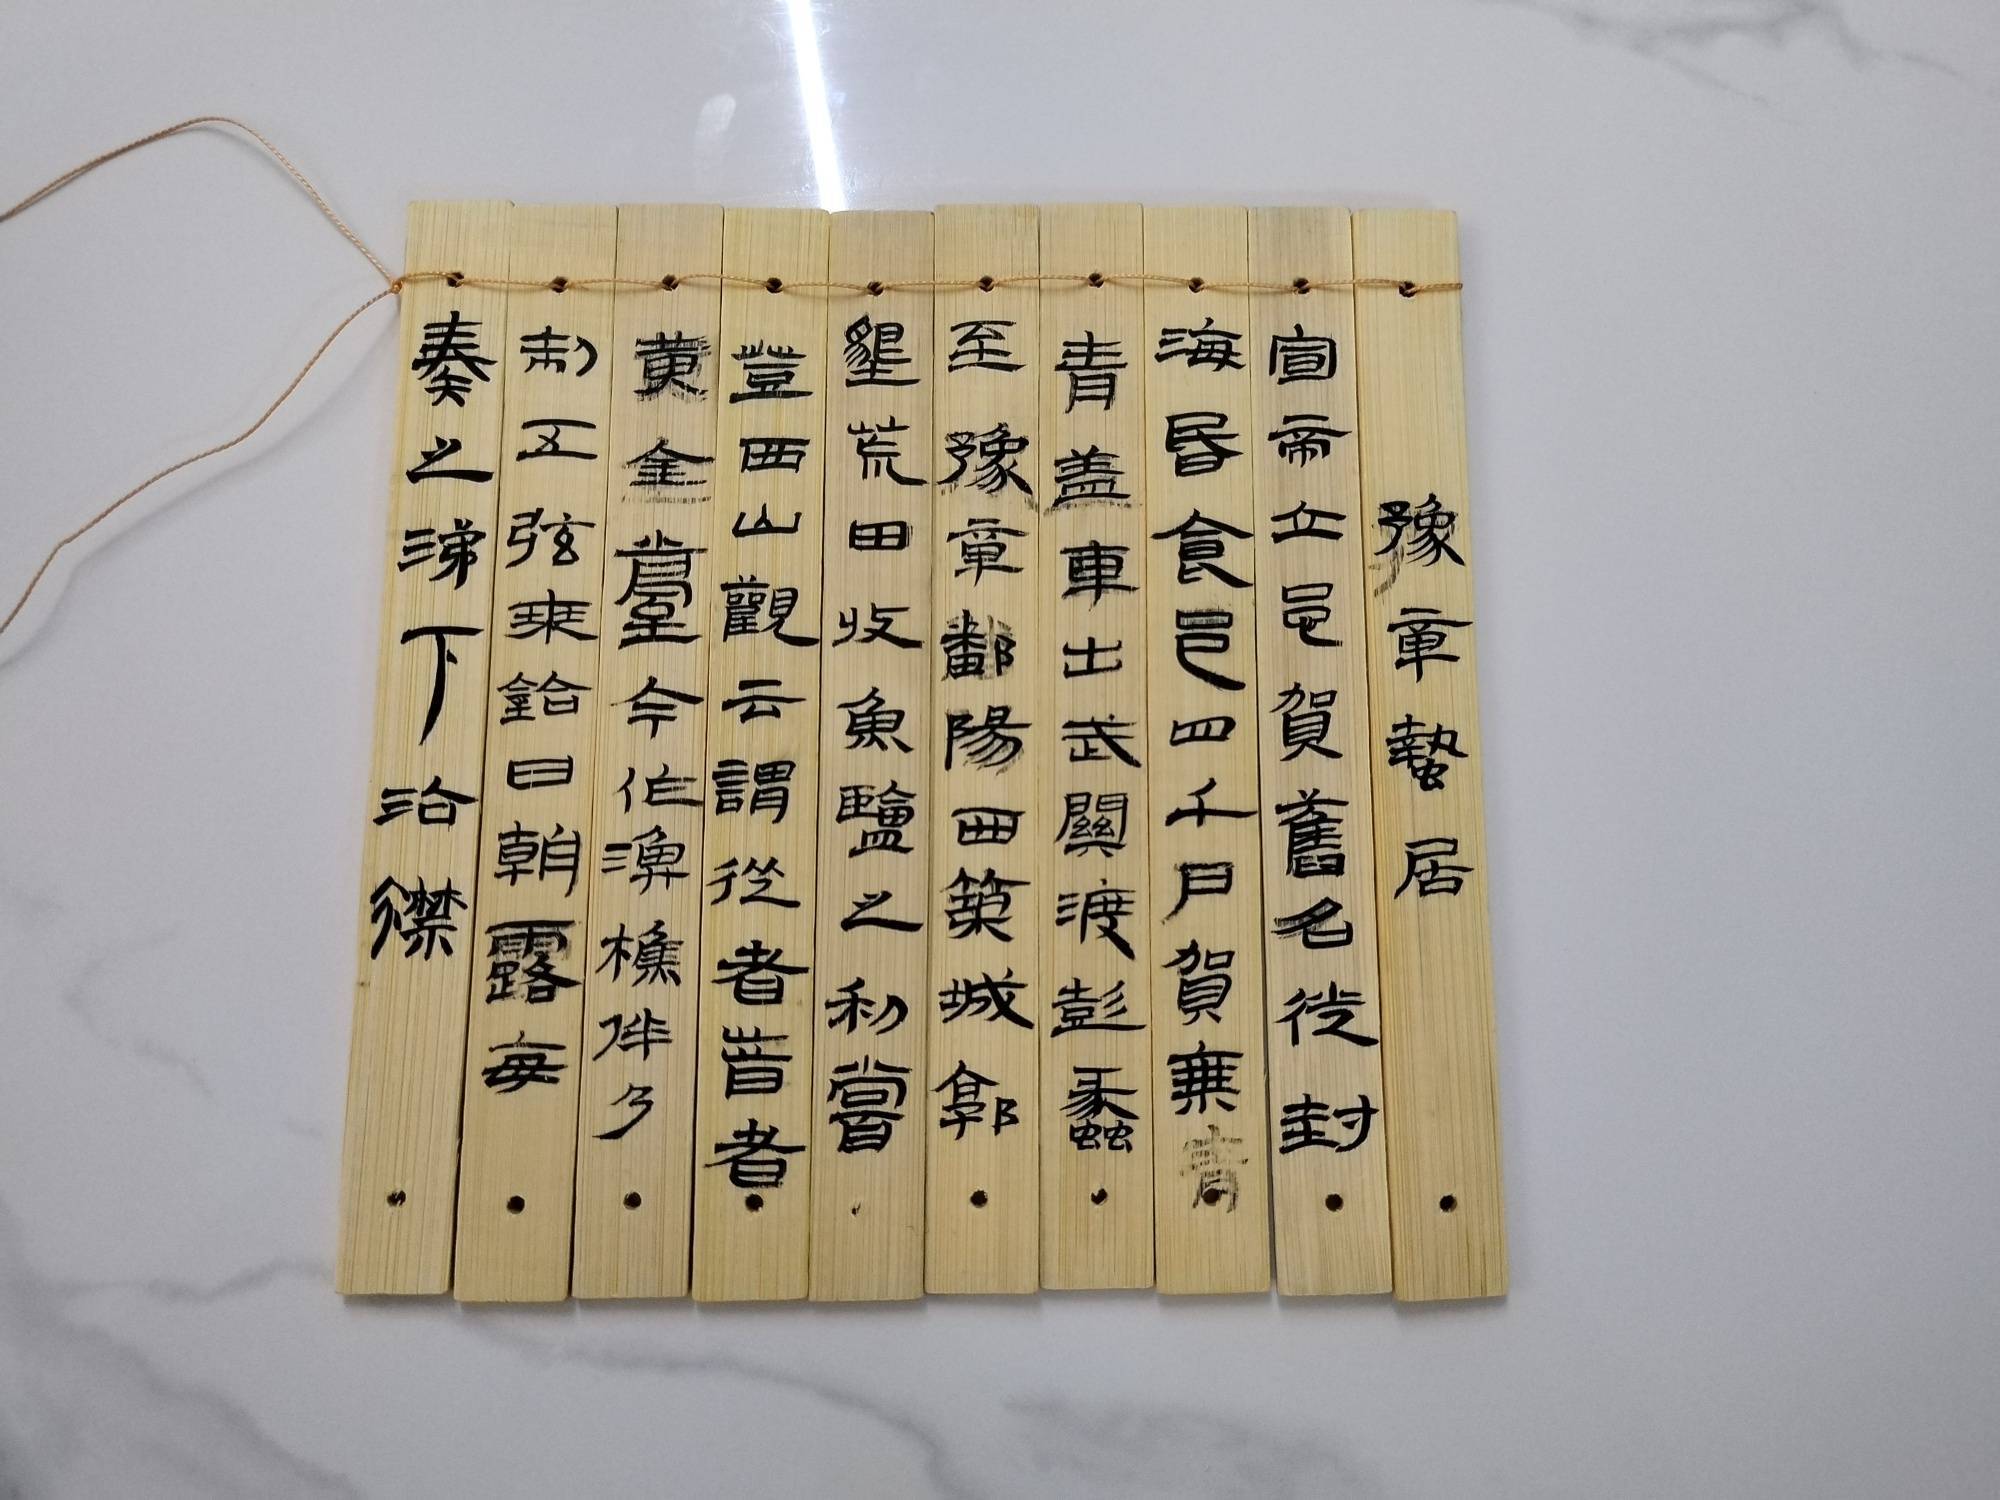 豫章蟄居
宣帝立邑賀舊名徙封
海昏食邑四千戶賀棄青
青盖車出武關渡彭蠡
至豫章鄱陽西築城郭
墾荒田收魚鹽之利嘗
登西山觀云謂從者昔者
黃金臺今作漁樵伴乃
制五弦乘鋊曰朝露每
奏之涕下沾襟